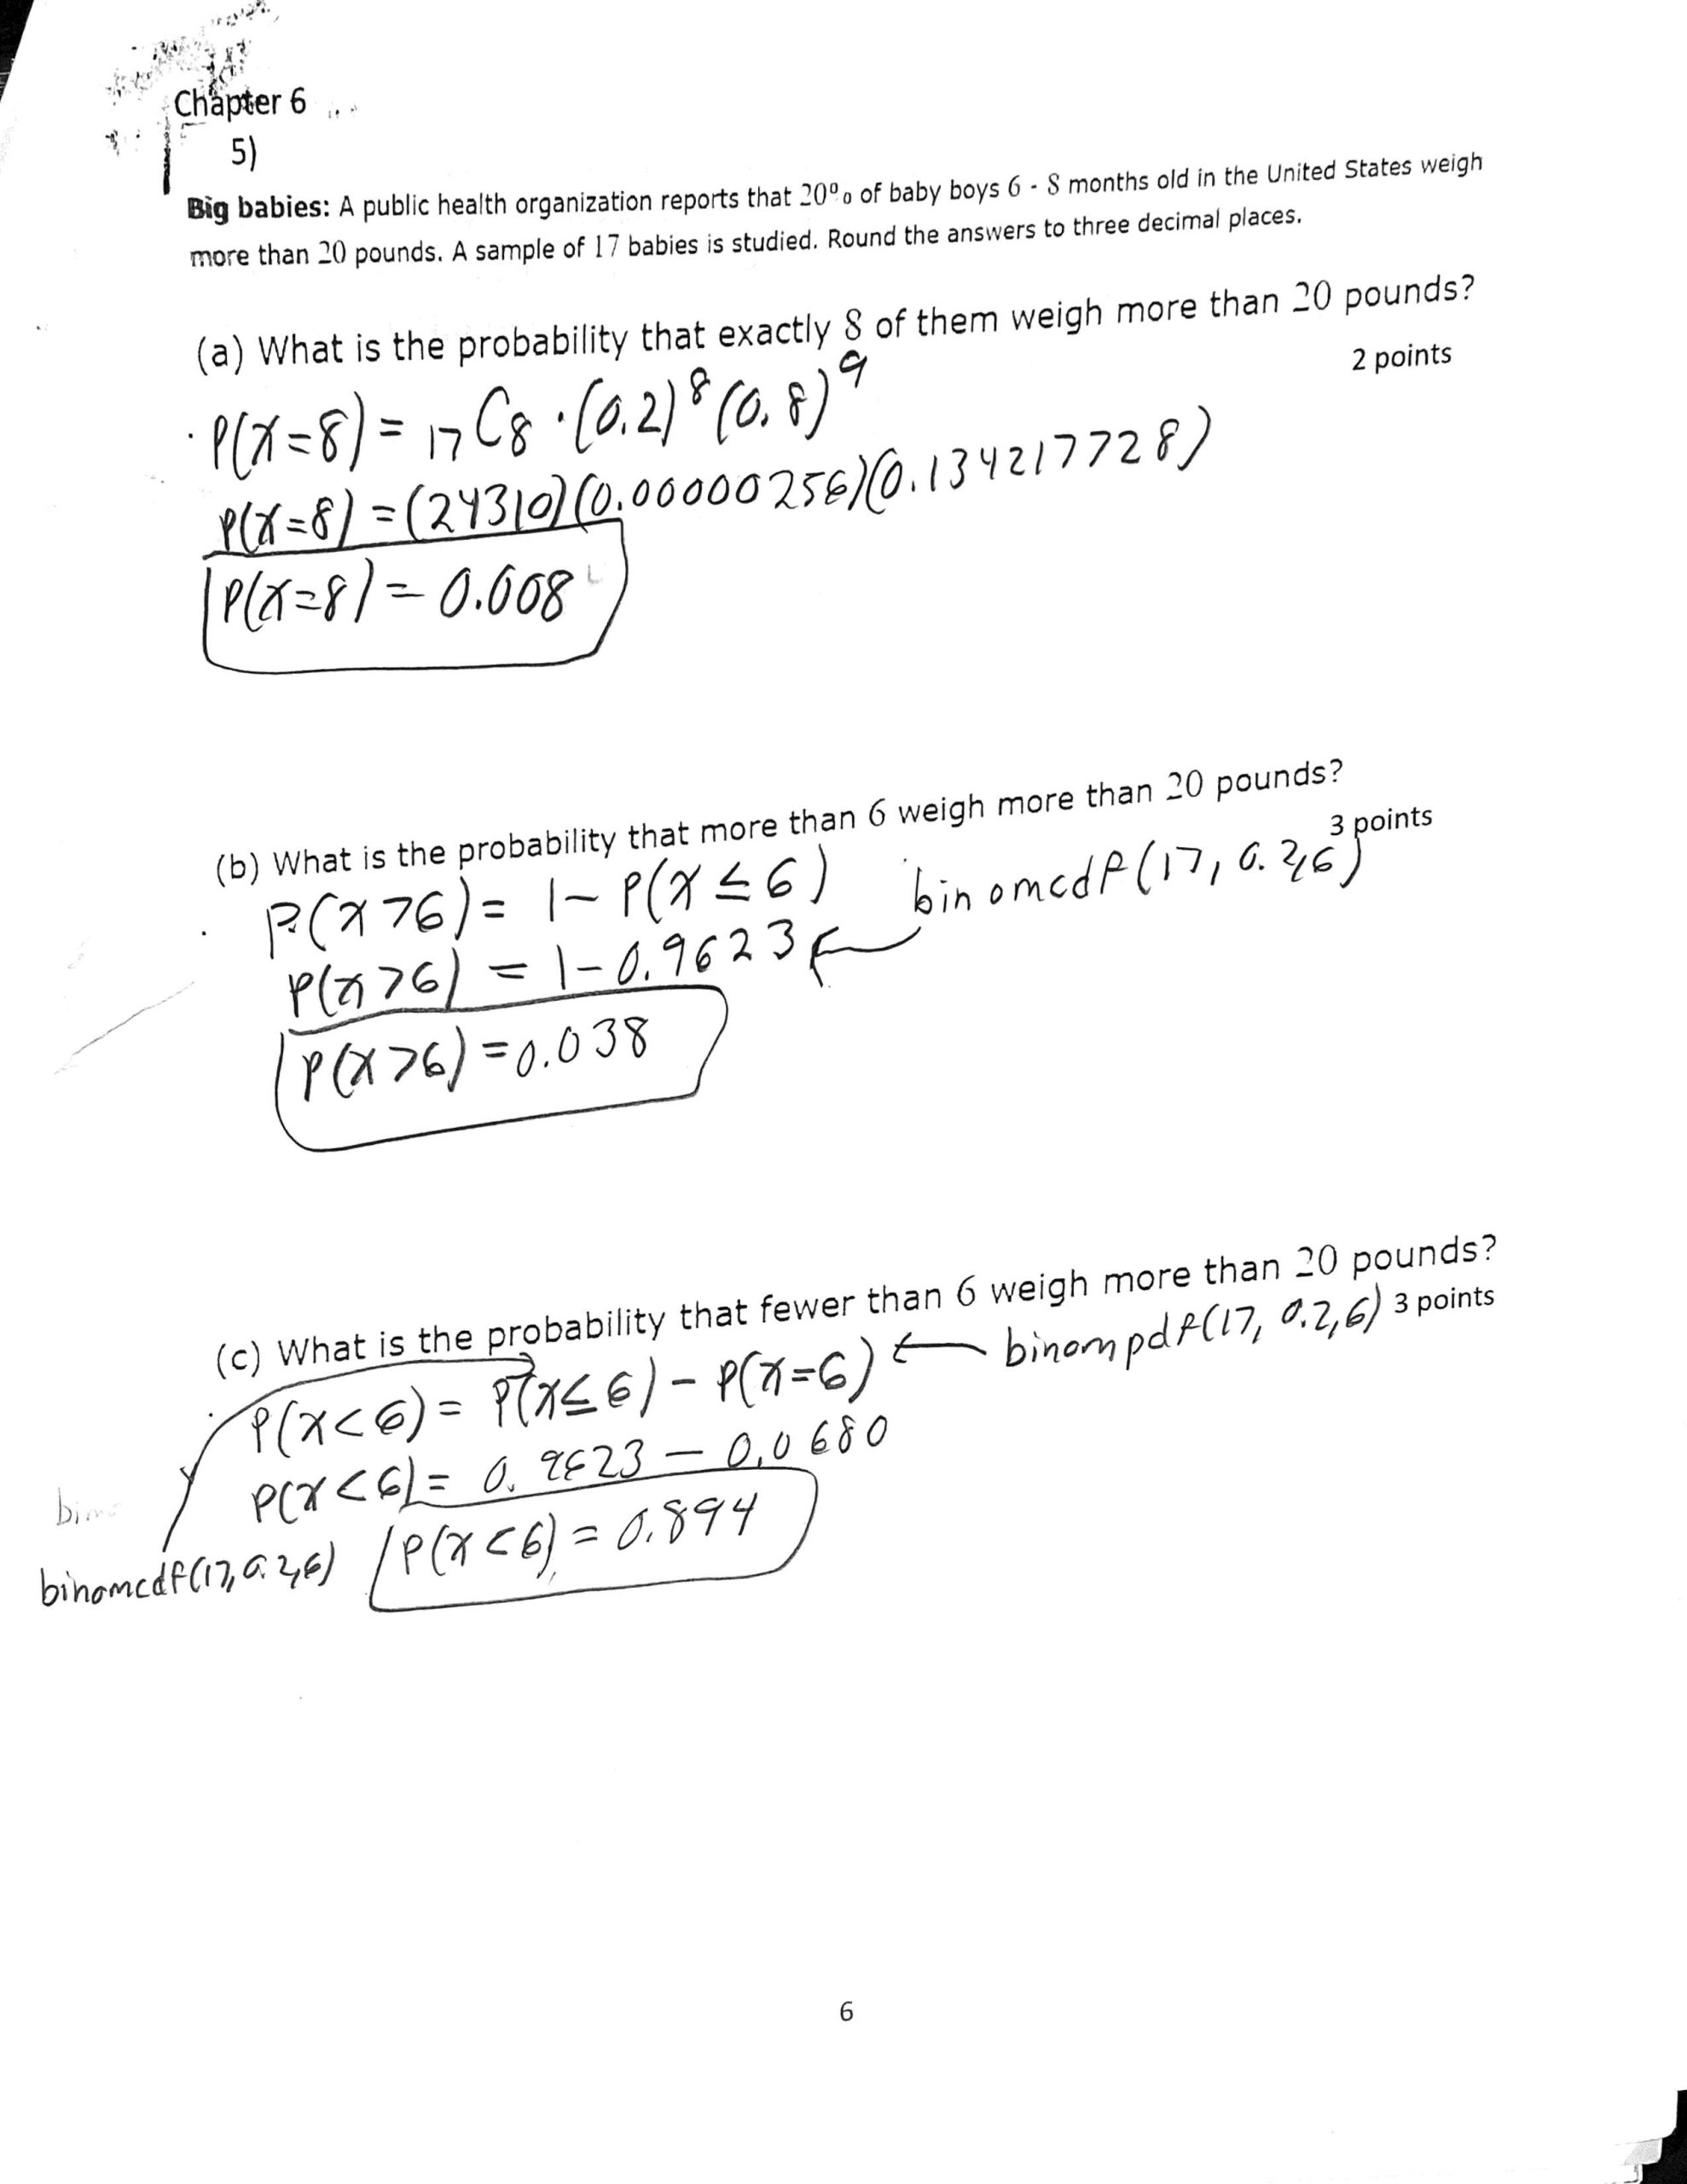 Chapter 6
5)
Big babies: A public health organization reports that 20% of baby boys 6 - 8 months old in the United States weigh
more than 20 pounds. A sample of 17 babies is studied. Round the answers to three decimal places.
(a) What is the probability that exactly 8 of them weigh more than 20 pounds?
2 points
P(x=8) = 17C8 · (0.2)^8 (0.8)^9
P(x=8) = (24310)(0.00000256)(0.134217728)
P(x=8) = 0.008
(b) What is the probability that more than 6 weigh more than 20 pounds?
3 points
P(x>6) = 1- P(x ≤ 6) binomcdf(17, 0.2,6)
P(x>6) = 1-0.9623 ←
P(x>6) = 0.038
(c) What is the probability that fewer than 6 weigh more than 20 pounds?
P(x<6) = P(x≤6) - P(x=6) ← binompdf(17, 0.2,6) 3 points
P(x<6) = 0.9623 - 0.0680
binomcdf(17,0.2,6) P(x<6) = 0.894
6